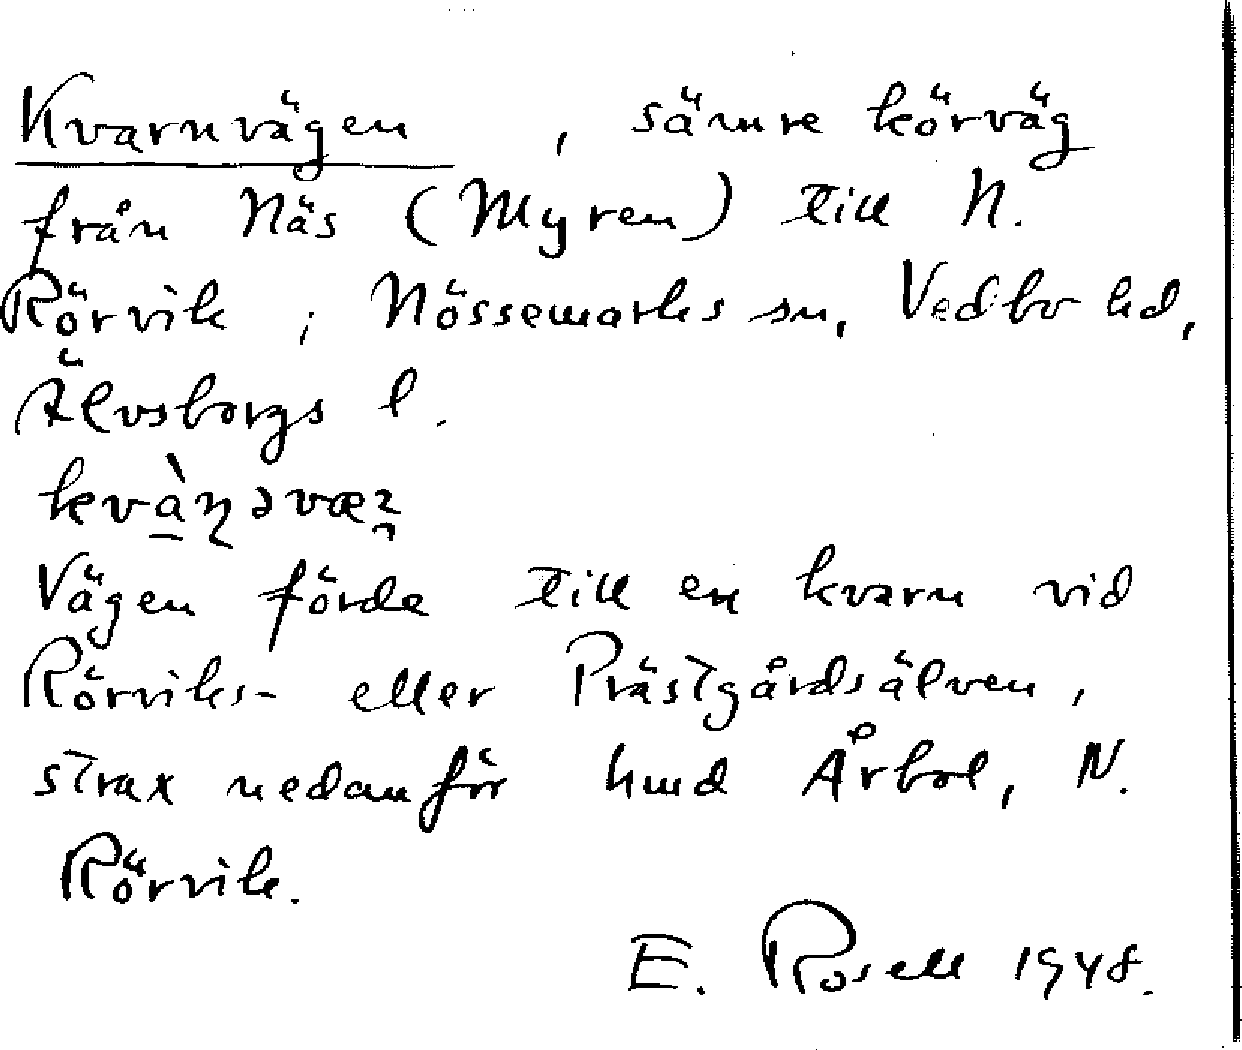 Kvarnvägen , sämre körväg
från Näs (Myren) till N.
Rörvik ; Nössemarks sn, Vedbo hd,
Älvsborgs l.
Vägen förde till en kvarn vid
Rörviks- eller Prästgårdsälven,
strax nedanför hmd Årbol, N.
Rörvik.
E. Rosell 1948.